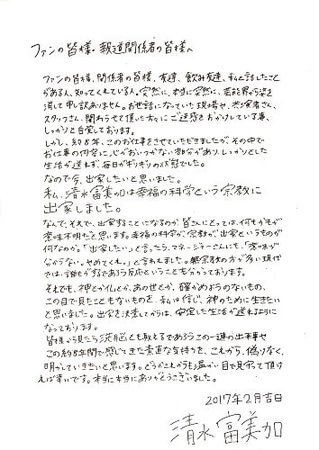 ファンの皆様、報道関係者の皆様へ
ファンの皆様、関係者の皆様、友達、飲み友達、私と話したこと
がある人、知ってくれている人。突然に、本当に突然に、芸能界から姿を
消して申し訳ありません。お世話になっていた現場や、共演者さん、
スタッフさん、関わらせて頂いた方々にご迷惑をおかけしている事、
しっかりと自覚しております。
しかし、約8年、このお仕事をさせていただきましたが、その中で
お仕事の内容に、心がおいつかない部分があり、しっかりとした
生活が送れず、毎日がギリギリの状態でした。
なので今、出家したいと思いました。
私、清水富美加は幸福の科学という宗教に
出家しました。
なんで、それで、出家することになるのか 皆さんにとっては、何もかもが
意味不明だと思います。幸福の科学が、宗教が、出家というものが
何なのか。「出家したい」と言ったら、マネージャーさんにも、「意味が
分からない。やめてくれ。」と言われました。無宗教の方が多い現代
では、誰もがするであろう反応ということも分かっております。
それでも、神とか仏とか、あの世とか、確かめようのないもの、
この目で見たこともないものを、私は信じ、神のために生きたい
と思いました。出家を決意してからは、安定した生活が送れるように
なっております。
皆様から見たら洗脳とも取るであろうこの一連の出来事や
この約8年間で感じてきた素直な気持ちを、これから、偽りなく、
明かしていきたいと思います。どうかこれからも温かい目で見守って頂け
れば幸いです。本当に本当にありがとうございました。
2017年2月吉日
清水富美加